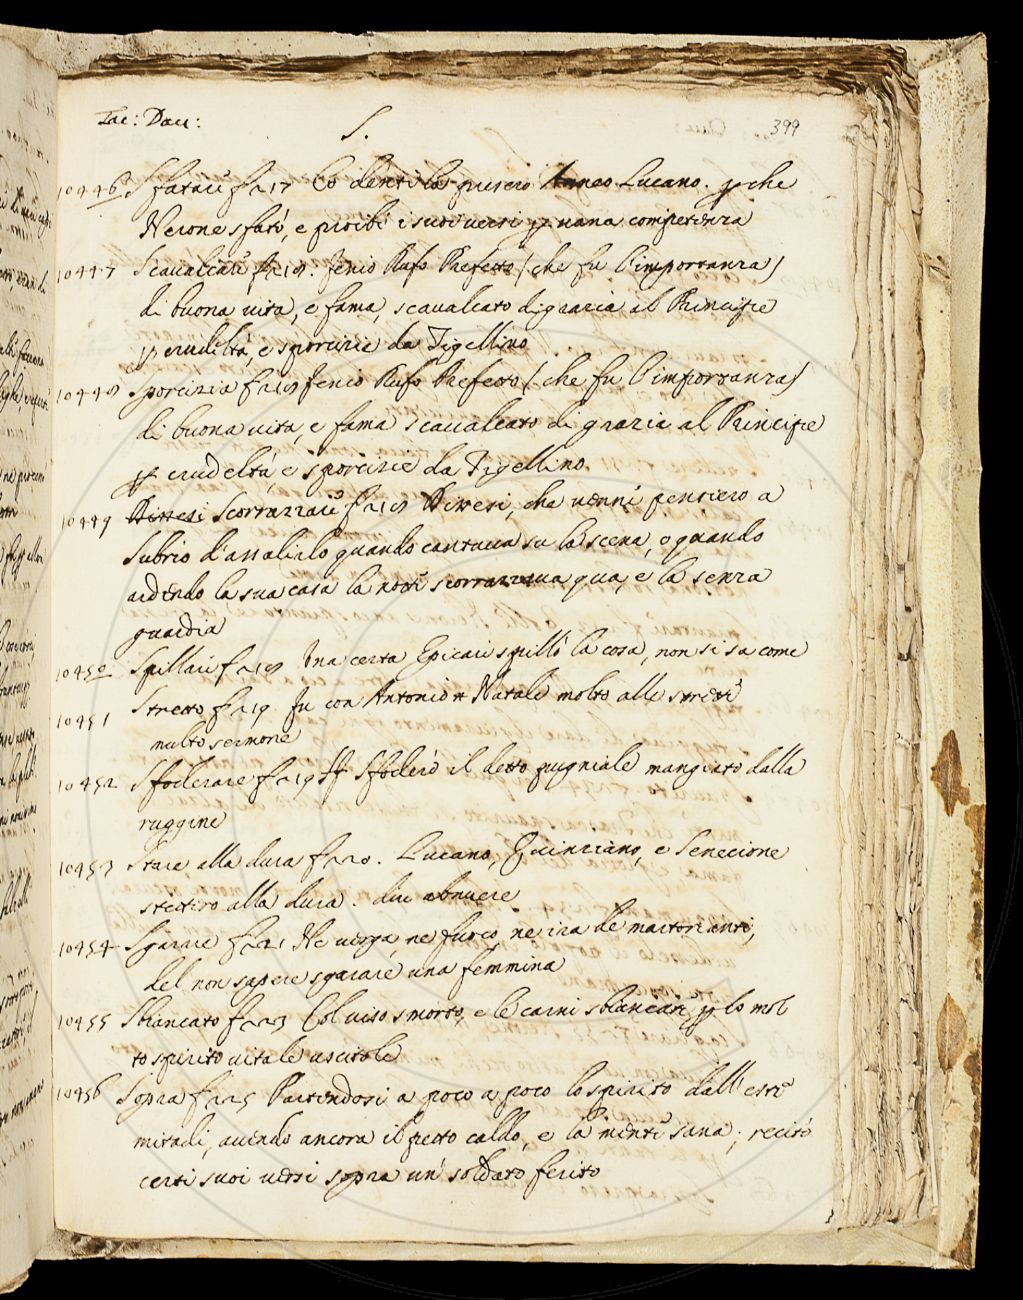 Tac: Dau:
S.
399
10446 Sfatare f. 217 Co denti lo puisero Anneo Lucano. p che
Nerone sfatò, e proibì i suoi versi p uana competenza
10447 Scaualcare f. 218. Fenio Rufo Prefetto / che fu l'importanza /
di buona uita, e fama, scaualcato di grazia al Principe
p crudeltà, e sporcizie da Tigellino
10448 Sporcizia f. 218 Fenio Rufo Prefetto / che fu l'importanza /
di buona uita, e fama scaualcato di grazia al Principe
p crudeltà, e sporcizie da Tigellino
10449 Scorrazzare f. 218 Dissesi, che uenne pensiero a
Subrio d'assalirlo quando cantaua su la scena, o quando
ardendo la sua casa la notte scorrazzaua qua, e là senza
guardia
10450 Spillare f. 218 Una certa Epicari spillò la cosa, non si sa come
10451 Stretto f. 219 Fu con Antonio Natale molto alle strette
multo sermone
10452 Sfoderare f. 219 Sfoderò il detto pugniale mangiato dalla
ruggine
10453 Stare alla dura f. 220. Lucano, Quinziano, e Senecione
stettero alla dura. diu abnuere
10454 Sgarare f. 221 Ne uerga, ne fuoco, ne ira de martorianti,
del non sapere sgarare una femmina
10455 Sbiancato f. 223 Col uiso smorto, e le carni sbiancate, p lo mol
to spirito uitale uscitole
10456 Sopra f. 225 Partendosi a poco a poco lo spirito dall' estre
mitadi, auendo ancora il petto caldo, e la mente sana; recitò
certi suoi uersi sopra un' soldato ferito